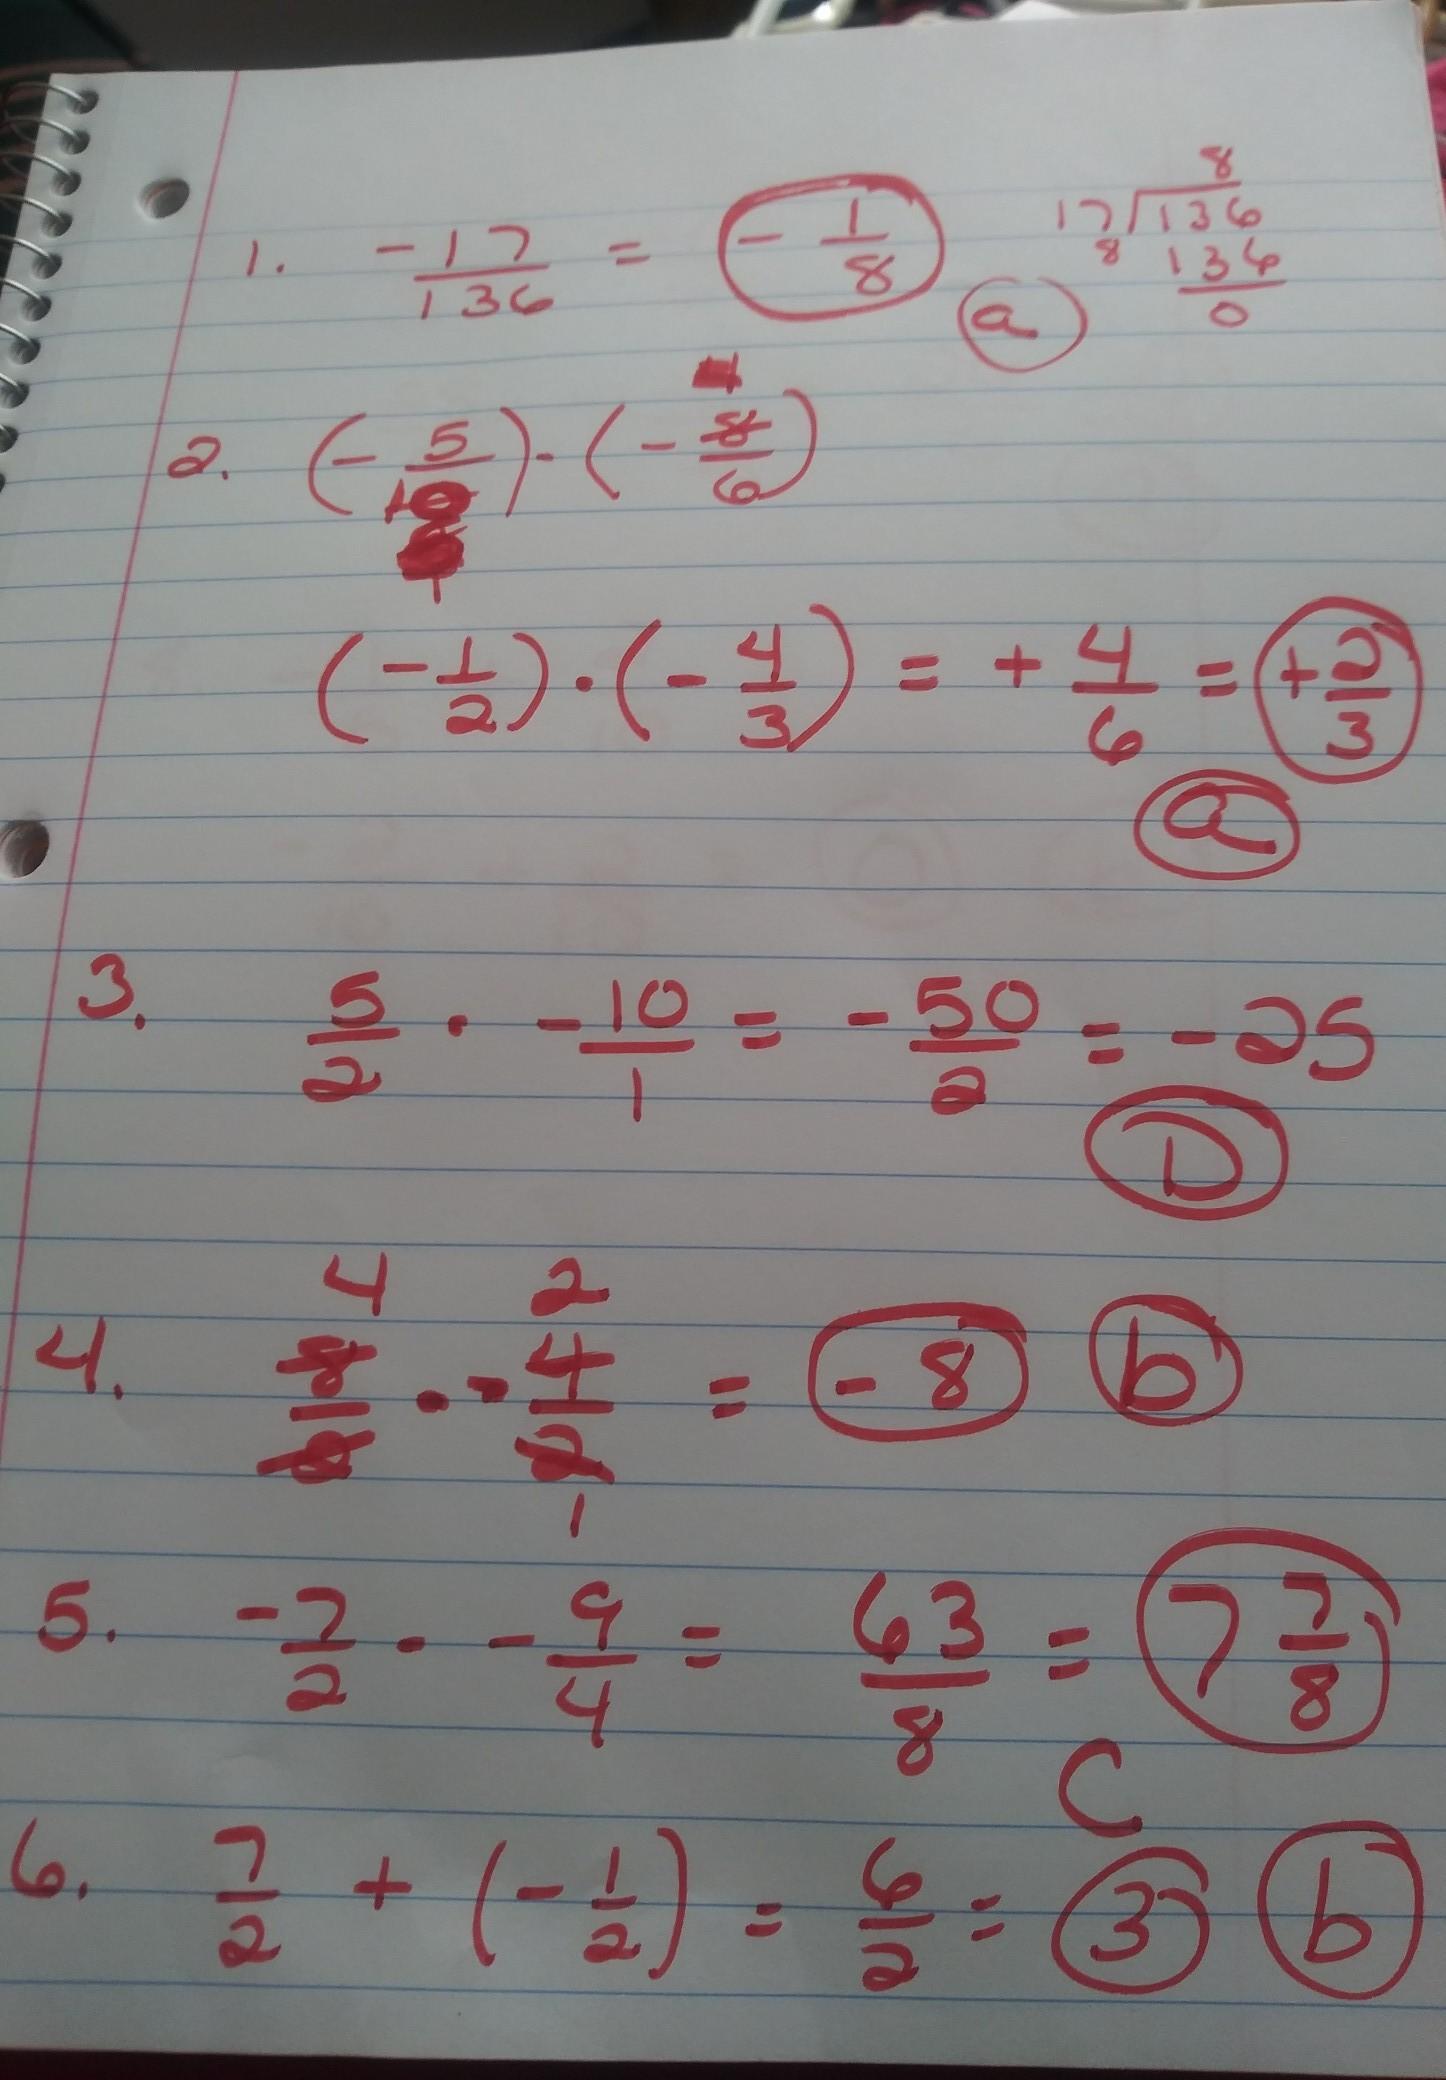 1. -17/136 = - 1/8 a
8
17 136
8 136
0
4
2. (- 5/10) · (- 8/6)
1
(- 1/2) · (- 4/3) = + 4/6 = + 2/3
a
3. 5/2 · - 10/1 = - 50/2 = - 25
D
4 2
4. 8/2 · - 4/2 = - 8 b
1
5. -7/2 · - 9/4 = 63/8 = 7 7/8
C
6. 7/2 + (- 1/2) = 6/2 = 3 b